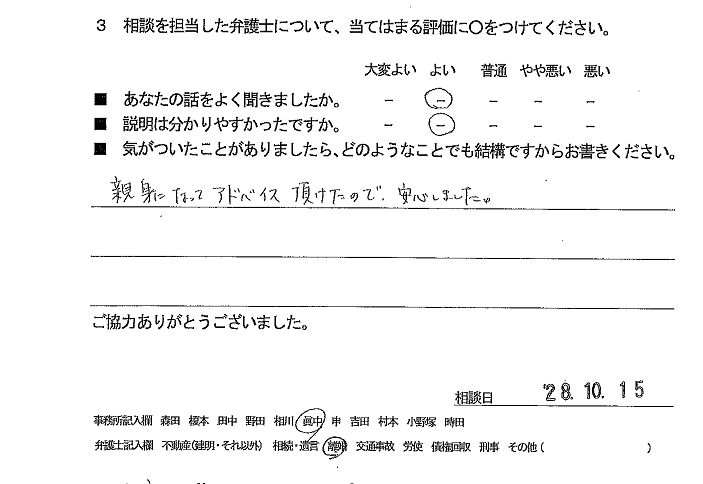 3 相談を担当した弁護士について、当てはまる評価に○をつけてください。
大変よい よい 普通 やや悪い 悪い
■ あなたの話をよく聞きましたか。 － － － － －
■ 説明は分かりやすかったですか。 － － － － －
■ 気がついたことがありましたら、どのようなことでも結構ですからお書きください。
親身になって アドバイス 頂けたので、安心しました。
ご協力ありがとうございました。
相談日 '28.10.15
事務所記入欄 森田 榎本 田中 野田 相川 眞中 申 吉田 村本 小野塚 時田
弁護士記入欄 不動産(建明・それ以外) 相続・遺言 離婚 交通事故 労使 債権回収 刑事 その他( )